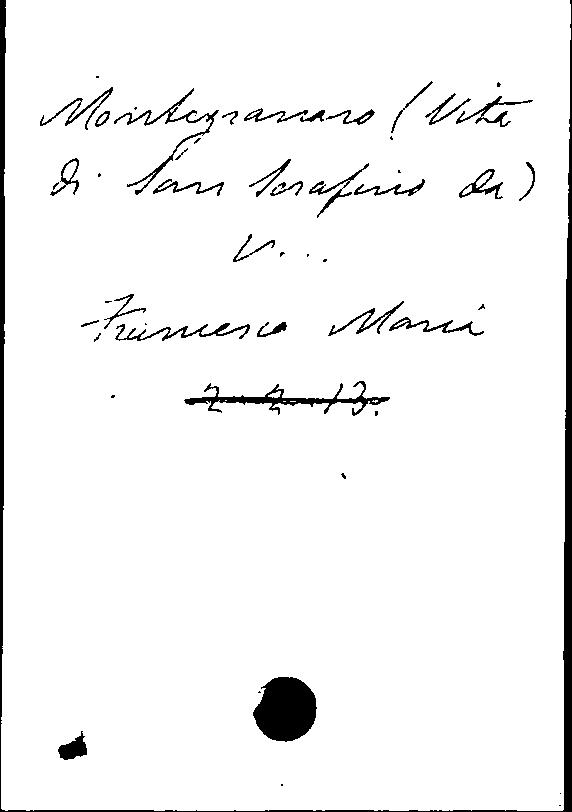 Montegranaro (Vita
di San Serafino da)
V...
Francesco Maria
2-2-13.